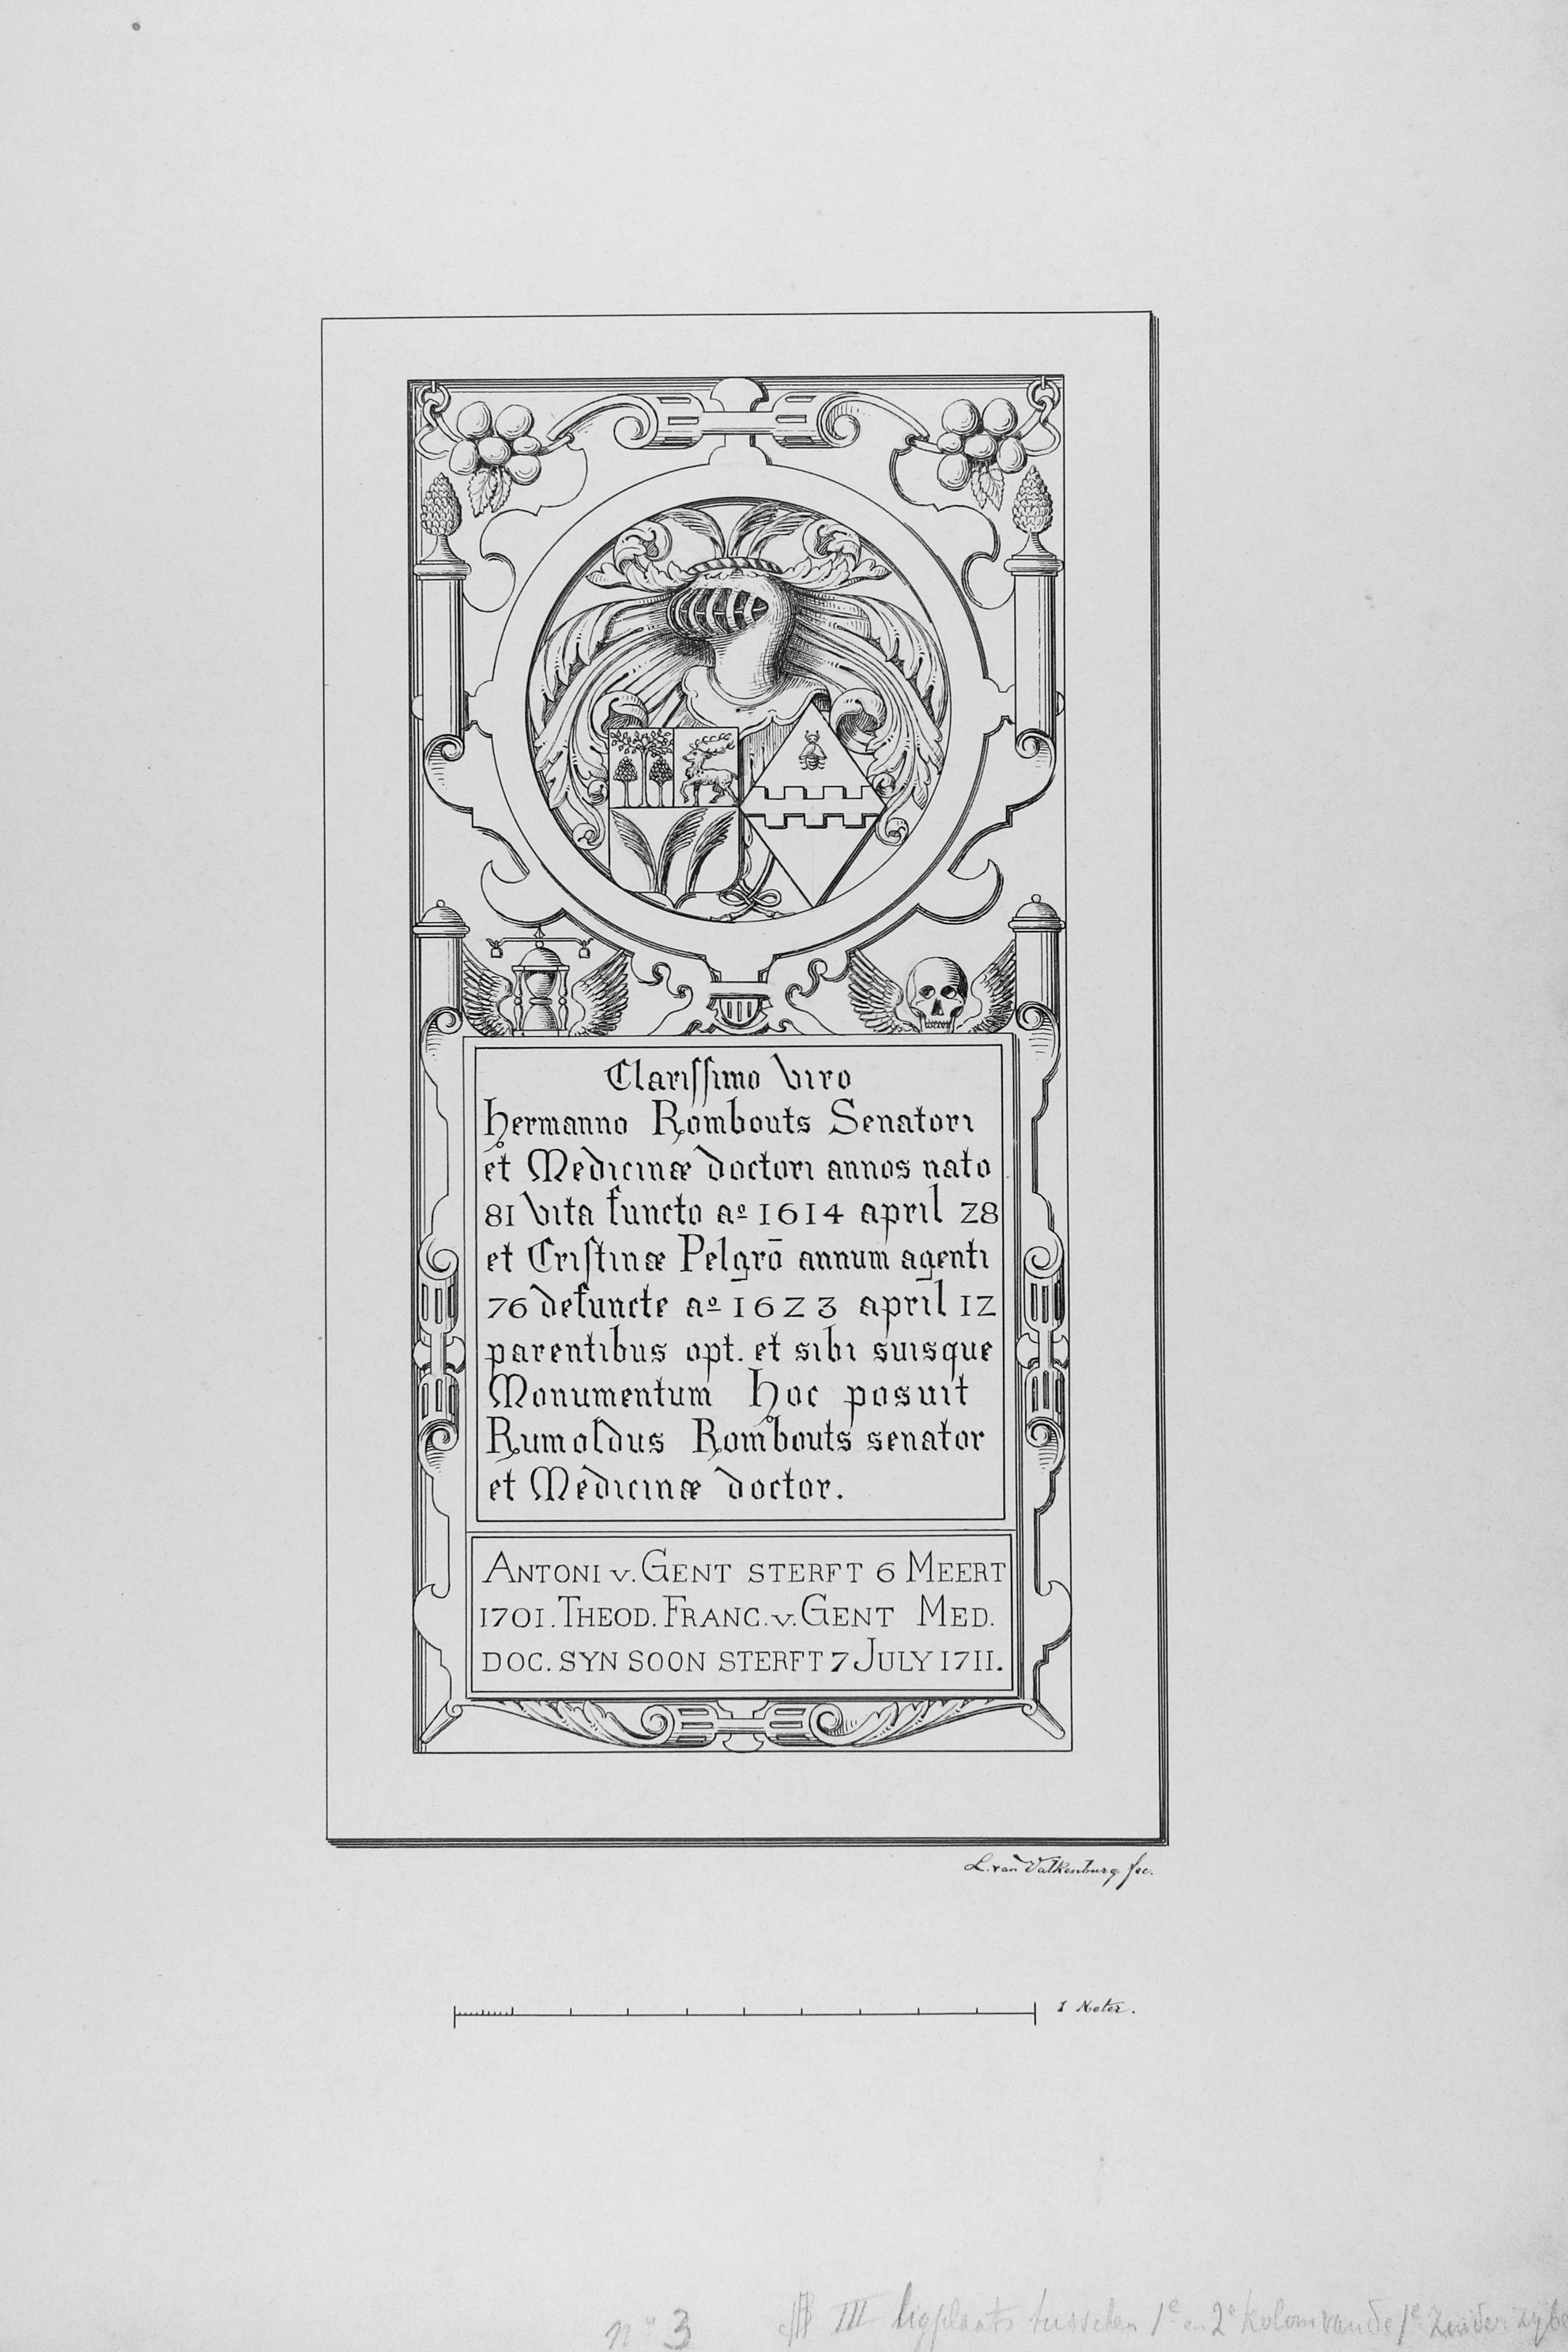 Clarissimo Viro
Hermanno Rombouts Senatori
et Medicinæ doctori annos nato
81 Vita functo aº 1614 april 28
et Cristinæ Pelgrō annum agenti
76 defuncte aº 1623 april 12
parentibus opt. et sibi suisque
Monumentum Hoc posuit
Rumoldus Rombouts senator
et Medicinæ doctor.
ANTONI v. GENT STERFT 6 MEERT
1701. THEOD. FRANC. v. GENT MED.
DOC. SYN SOON STERFT 7 JULY 1711.
L. van Valkenburg fec.
1 Meter.
nº 3 III ligplaats tusschen 1e en 2e kolom van de 1e Zuider zijbe